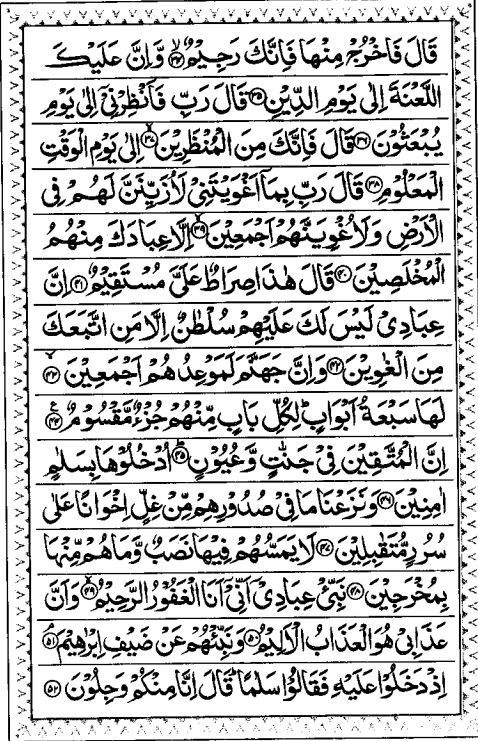 قَالَ فَاخۡرُجۡ مِنۡهَا فَاِنَّكَ رَجِيۡمٌ ۙ‏﴿۳۴﴾ وَّاِنَّ عَلَيۡكَ
اللَّعۡنَةَ اِلٰى يَوۡمِ الدِّيۡنِ‏ ﴿۳۵﴾ قَالَ رَبِّ فَاَنۡظِرۡنِىۡۤ اِلٰى يَوۡمِ
يُبۡعَثُوۡنَ‏ ﴿۳۶﴾ قَالَ فَاِنَّكَ مِنَ الۡمُنۡظَرِيۡنَۙ‏ ﴿۳۷﴾ اِلٰى يَوۡمِ الۡوَقۡتِ
الۡمَعۡلُوۡمِ‏ ﴿۳۸﴾ قَالَ رَبِّ بِمَاۤ اَغۡوَيۡتَنِىۡ لَاُزَيِّنَنَّ لَهُمۡ فِى
الۡاَرۡضِ وَلَاُغۡوِيَنَّهُمۡ اَجۡمَعِيۡنَۙ‏ ﴿۳۹﴾ اِلَّا عِبَادَكَ مِنۡهُمُ
الۡمُخۡلَصِيۡنَ‏ ﴿۴۰﴾ قَالَ هٰذَا صِرَاطٌ عَلَىَّ مُسۡتَقِيۡمٌ‏ ﴿۴۱﴾ اِنَّ
عِبَادِىۡ لَيۡسَ لَكَ عَلَيۡهِمۡ سُلۡطٰنٌ اِلَّا مَنِ اتَّبَعَكَ
مِنَ الۡغٰوِيۡنَ‏ ﴿۴۲﴾ وَاِنَّ جَهَنَّمَ لَمَوۡعِدُهُمۡ اَجۡمَعِيۡنَۙ‏ ﴿۴۳﴾
لَهَا سَبۡعَةُ اَبۡوَابٍؕ لِكُلِّ بَابٍ مِّنۡهُمۡ جُزۡءٌ مَّقۡسُوۡمٌ‏ ﴿۴۴﴾
اِنَّ الۡمُتَّقِيۡنَ فِىۡ جَنّٰتٍ وَّعُيُوۡنٍؕ‏ ﴿۴۵﴾ اُدۡخُلُوۡهَا بِسَلٰمٍ
اٰمِنِيۡنَ‏ ﴿۴۶﴾ وَنَزَعۡنَا مَا فِىۡ صُدُوۡرِهِمۡ مِّنۡ غِلٍّ اِخۡوَانًا عَلٰى
سُرُرٍ مُّتَقٰبِلِيۡنَ‏ ﴿۴۷﴾ لَا يَمَسُّهُمۡ فِيۡهَا نَصَبٌ وَّمَا هُمۡ مِّنۡهَا
بِمُخۡرَجِيۡنَ‏ ﴿۴۸﴾ نَبِّئۡ عِبَادِىۡۤ اَنِّىۡۤ اَنَا الۡغَفُوۡرُ الرَّحِيۡمُۙ‏ ﴿۴۹﴾ وَاَنَّ
عَذَابِىۡ هُوَ الۡعَذَابُ الۡاَلِيۡمُ‏ ﴿۵۰﴾ وَنَبِّئۡهُمۡ عَنۡ ضَيۡفِ اِبۡرٰهِيۡمَۘ‏ ﴿۵۱﴾
اِذۡ دَخَلُوۡا عَلَيۡهِ فَقَالُوۡا سَلٰمًاؕ قَالَ اِنَّا مِنۡكُمۡ وَجِلُوۡنَ‏ ﴿۵۲﴾